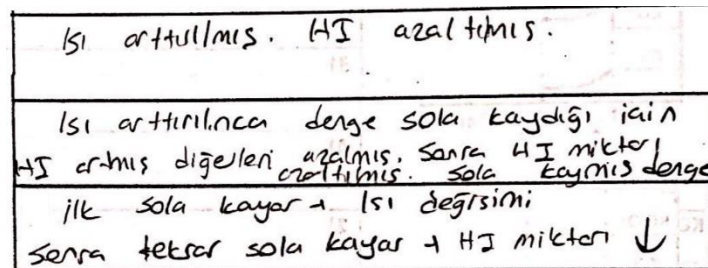 Isı arttırılmış. HI azaltılmış.
Isı arttırılınca denge sola kaydığı için
HI artmış diğerleri azalmış. Sonra HI miktarı
azaltılmış. sola kaymış denge
ilk sola kayar → Isı değişimi
Sonra tekrar sola kayar → HI miktarı ↓